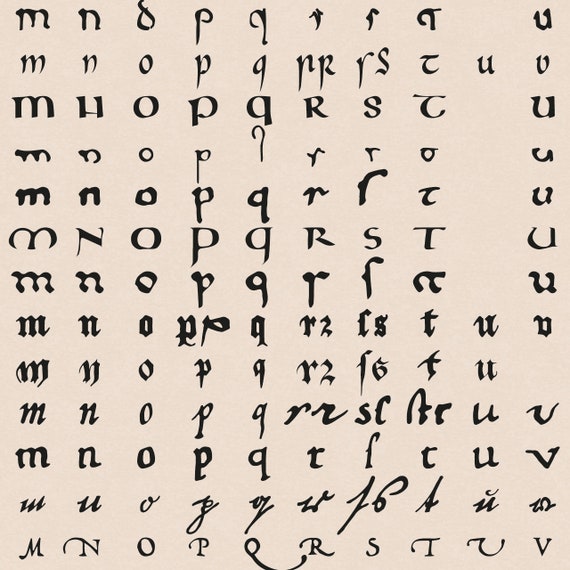 m n o p q r s t u
m n o p q r R ſ S t u v
m N O p q R S T U
m n o p q r s t u
m n o p q r ſ t u
M N O P q R S T U
m n o p q r ſ t u
m n o p p q r ꝛ ſ s t u v
m n o p q r ꝛ ſ s t u
m n o p q r r s ſ t t u v
m n o p q r ſ t u v
m n o p q r ſ s t u v
M N O P Q R S T U V